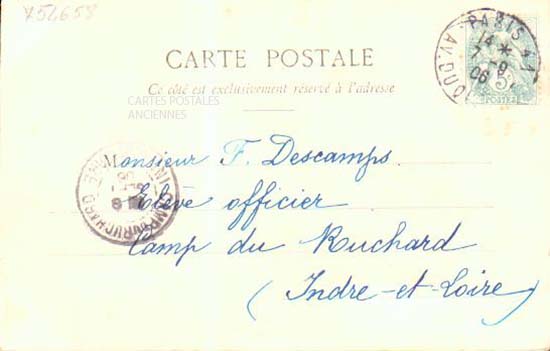 754658
CARTE POSTALE
Ce côté est exclusivement réservé à l'adresse
CARTES POSTALES
ANCIENNES
PARIS
14 *
7 -9
06
5
POSTES
Monsieur F. Descamps
Elève officier
Camp du Ruchard
(Indre-et-Loire)